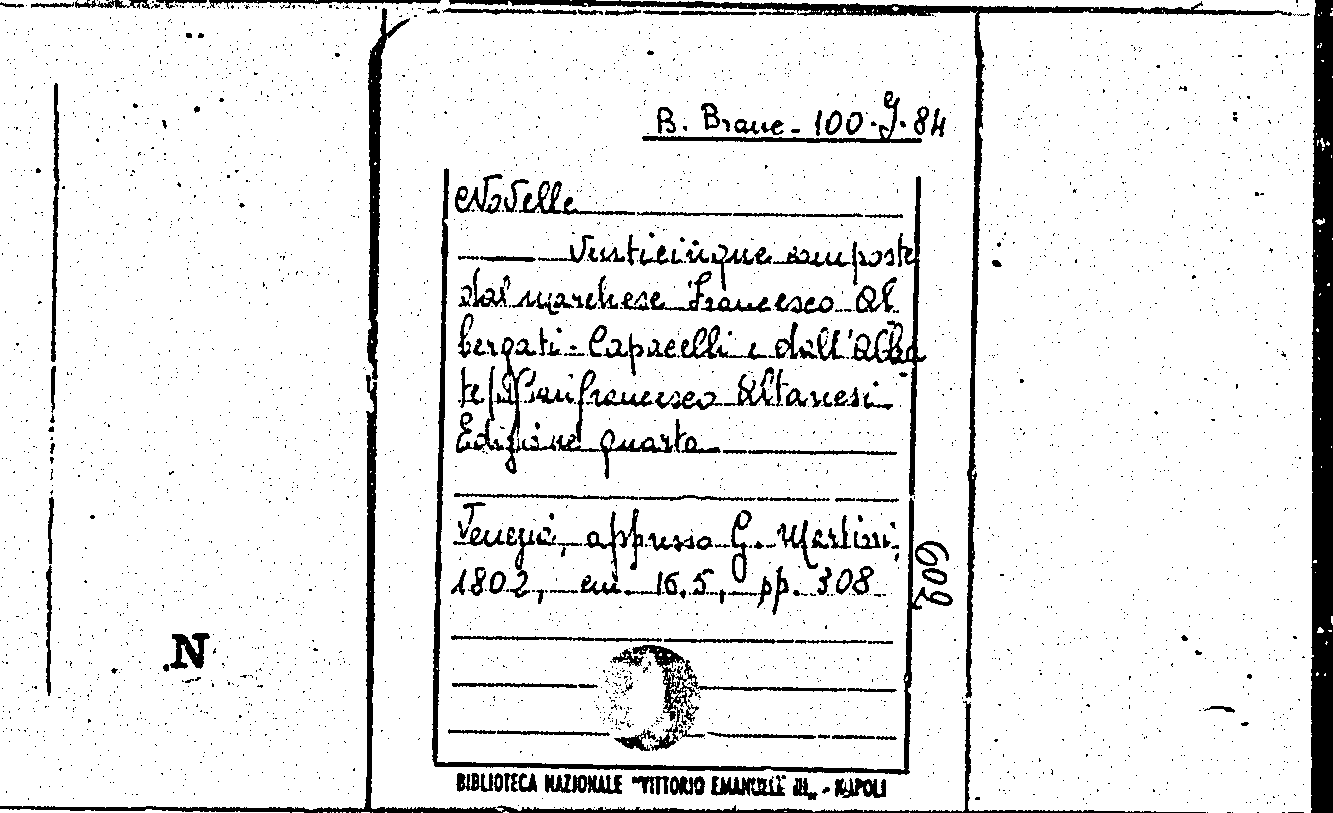 B. Branc - 100. G. 84
Novelle
Venticinque composte
dal marchese Francesco Al
bergati-Capacelli e dall'Abba
te Gianfrancesco Altanesi
Edizione quarta
Venezia, appresso G. Martini,
1802, cm. 16.5, pp. 308
602
N
BIBLIOTECA NAZIONALE "VITTORIO EMANUELE III„ - NAPOLI